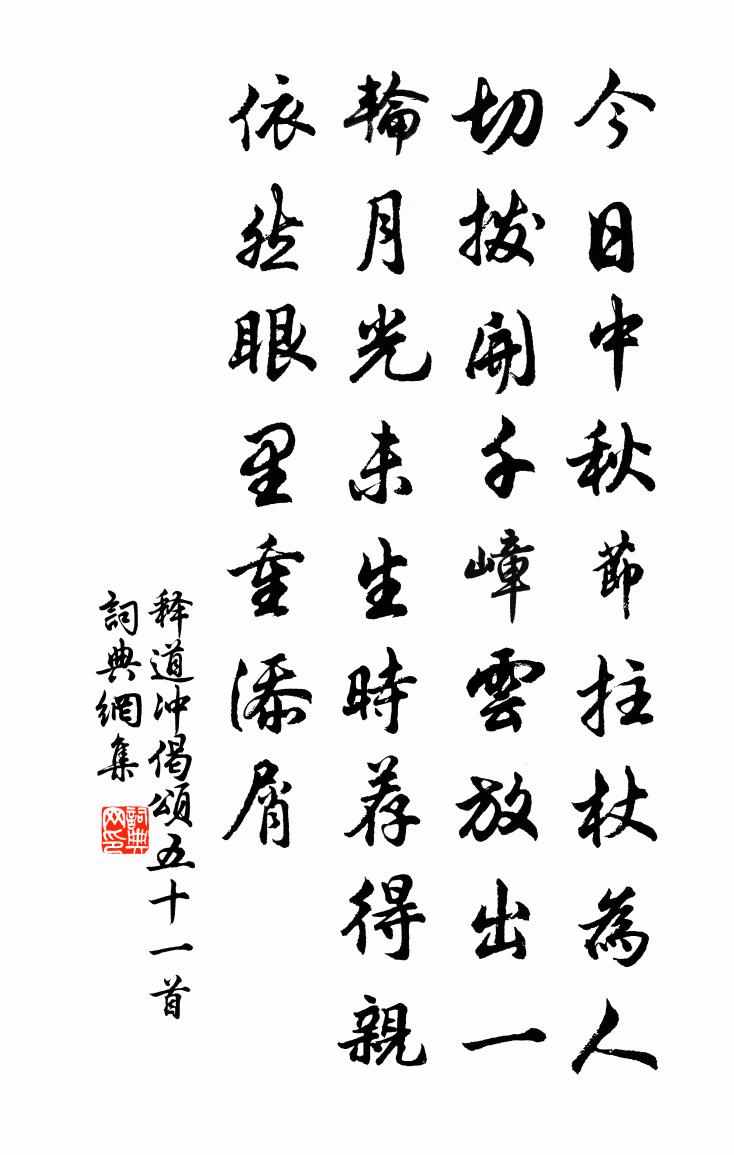 今日中秋節拄杖為人
切撥開千嶂雲放出一
輪月光未生時荐得親
依然眼里重添屑
释道冲偈頌五十一首
詞典網集
詞典
网印